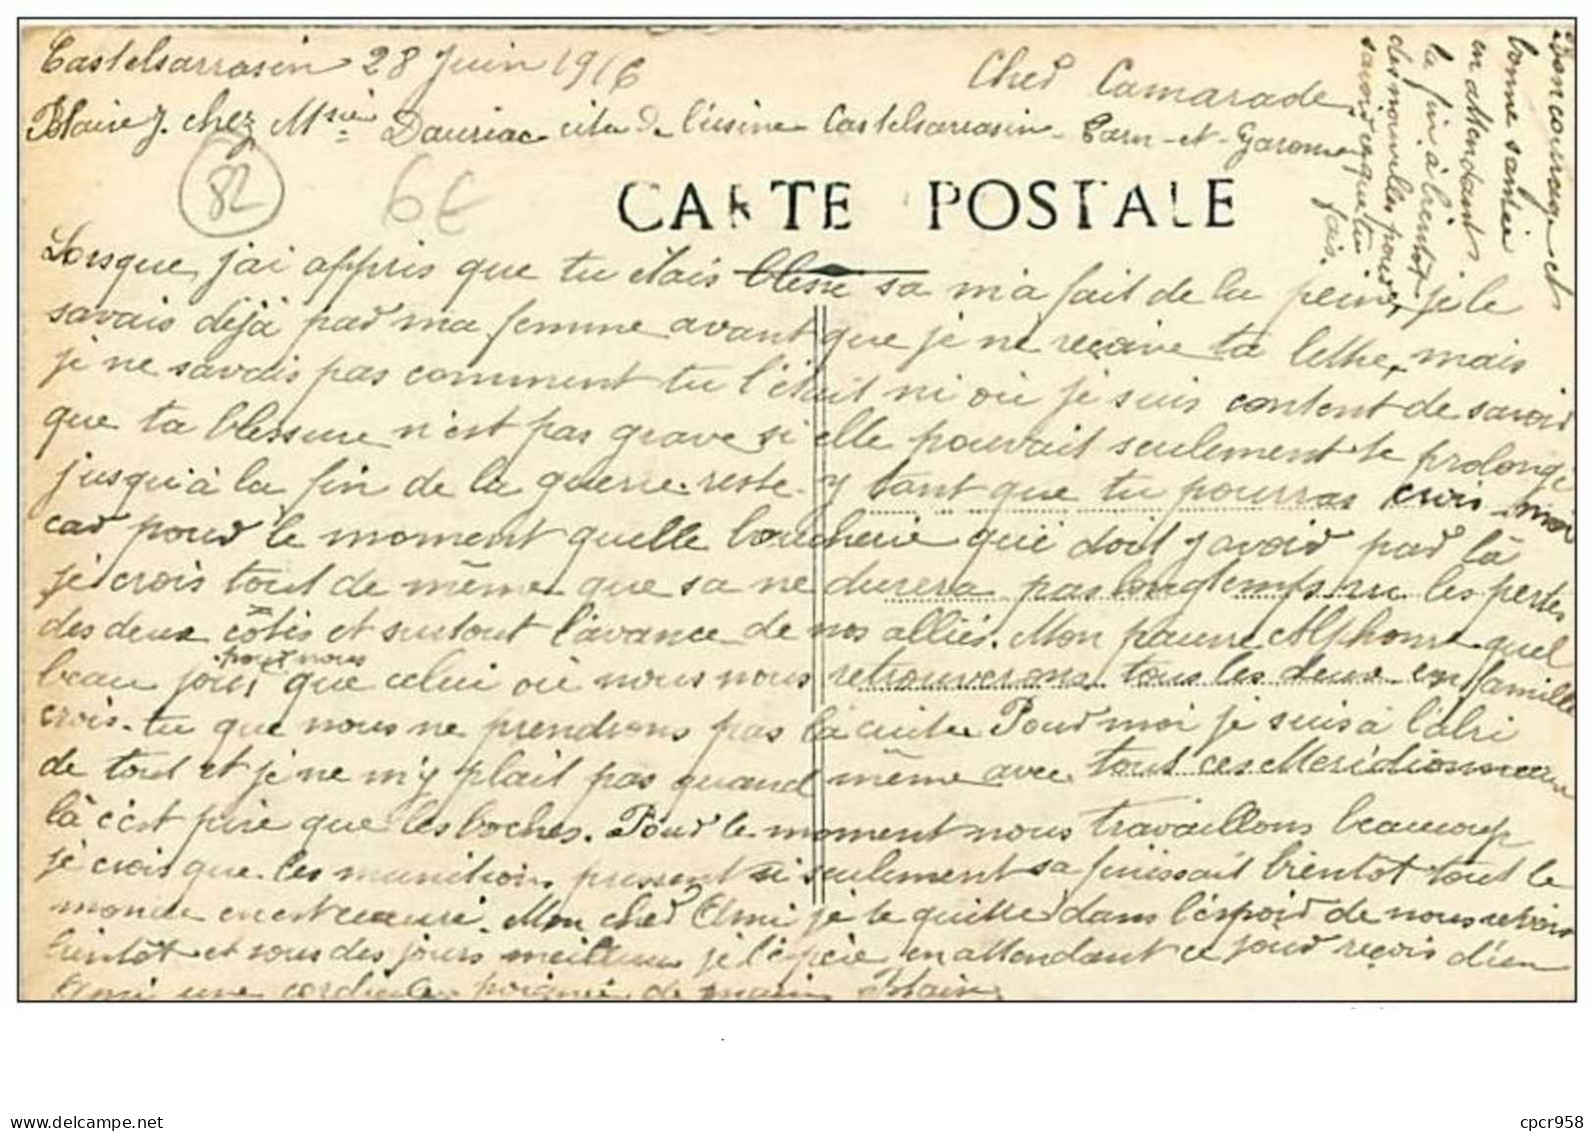 Castelsarrasin 28 Juin 1916
Cher Camarade
Blaire J. chez Mr Dauriac cité de l'usine Castelsarrasin Tarn-et-Garonne
82
6€
CARTE POSTALE
Lorsque j'ai appris que tu étais blessé sa m'a fait de la peine, je le
savais déjà par ma femme avant que je ne reçoive ta lettre, mais
je ne savais pas comment tu l'était ni où je suis content de savoir
que ta blessure n'est pas grave si elle pouvait seulement te prolongé
jusqu'à la fin de la guerre. reste-y tant que tu pourras crois-moi
car pour le moment quelle boucherie qu'il doit y avoir par là
je crois tout de même que sa ne durera pas longtemps vu les pertes
des deux côtés et surtout l'avance de nos alliés. Mon pauvre Alphonse quel
pour nous
beau jour que celui où nous nous retrouverons tous les deux en famille
crois-tu que nous ne prendrons pas la cuite Pour moi je suis à l'abri
de tout et je ne m'y plait pas quand même avec tous ces Meridionneaux
là c'est pire que les boches. Pour le moment nous travaillons beaucoup
je crois que les munitions pressent si seulement sa finissait bientot tout le
monde en est Mon cher Ami je te quitte dans l'espoir de nous revoir
bientôt et sous des jours meilleurs je l'espère en attendant ce jour reçois d'un
Ami une cordiale poignée de main Blaire
Bon courage et
bonne santée
en attendant
la fin à bientot
des nouvelles pour
savoir ce que tu
fais.
cpcr958